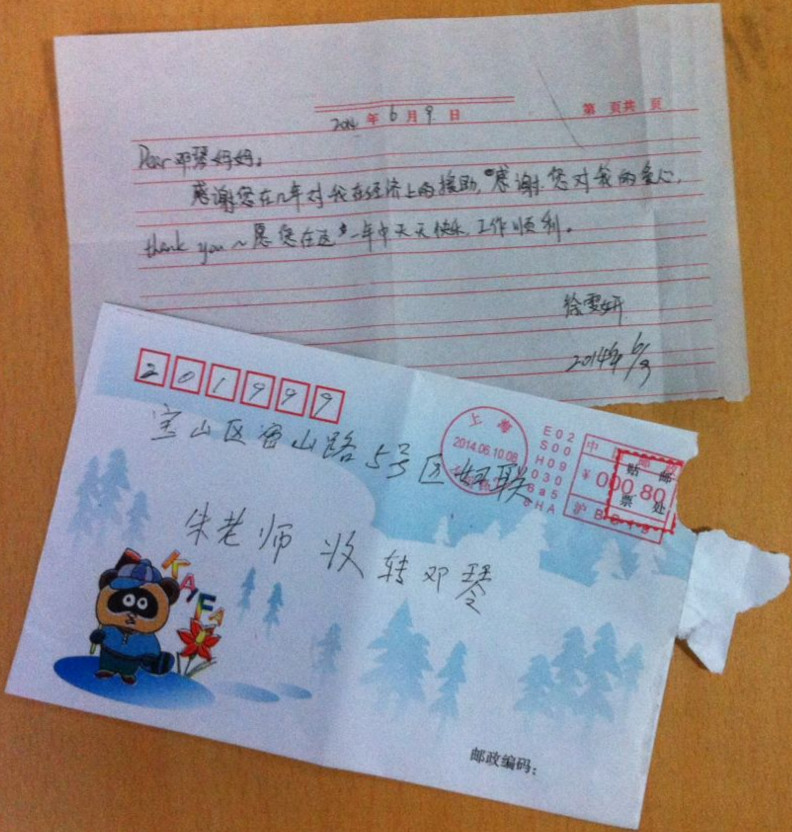 2014 年 6 月 9 日
第 页共 页
Dear 邓琴妈妈：
感谢您在几年对我在经济上的援助，感谢您对我的爱心，
thank you~愿您在这一年中天天快乐，工作顺利。
徐雯妍
2014年6/9
201999
宝山区密山路5号区妇联
朱老师 收 转 邓琴
上海
2014.06.10.08
E02
S00
H09
030
6a5
SHA
中国邮政
¥000.80
贴邮
票处
沪
KAFA
邮政编码：